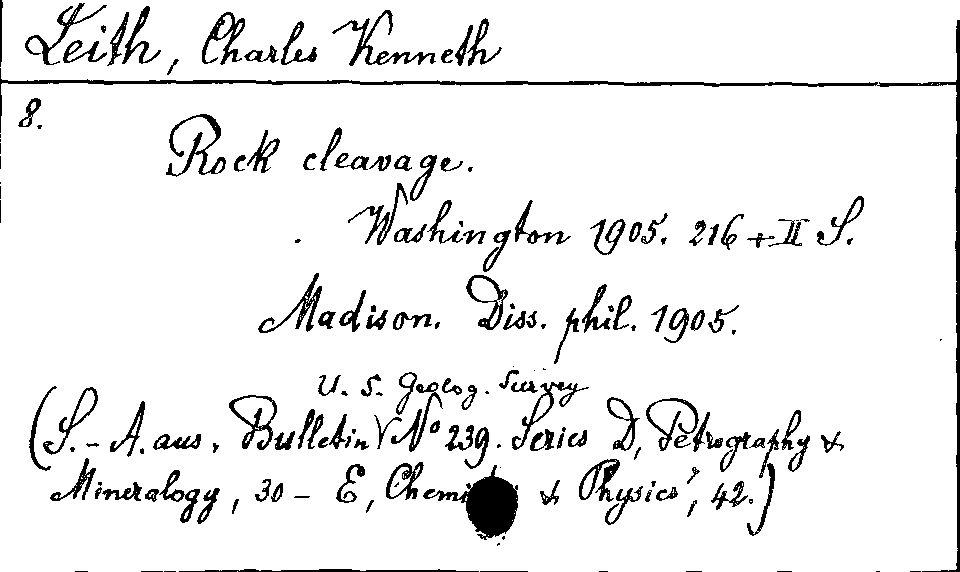 Leith, Charles Kenneth
8.
Rock cleavage.
Washington 1905. 216 + II S.
Madison. Diss. phil. 1905.
U. S. Geolog. Survey
(S.-A. aus, Bulletin N° 239. Series D, Petrography &
Mineralogy, 30 - E, & Physics", 42.)